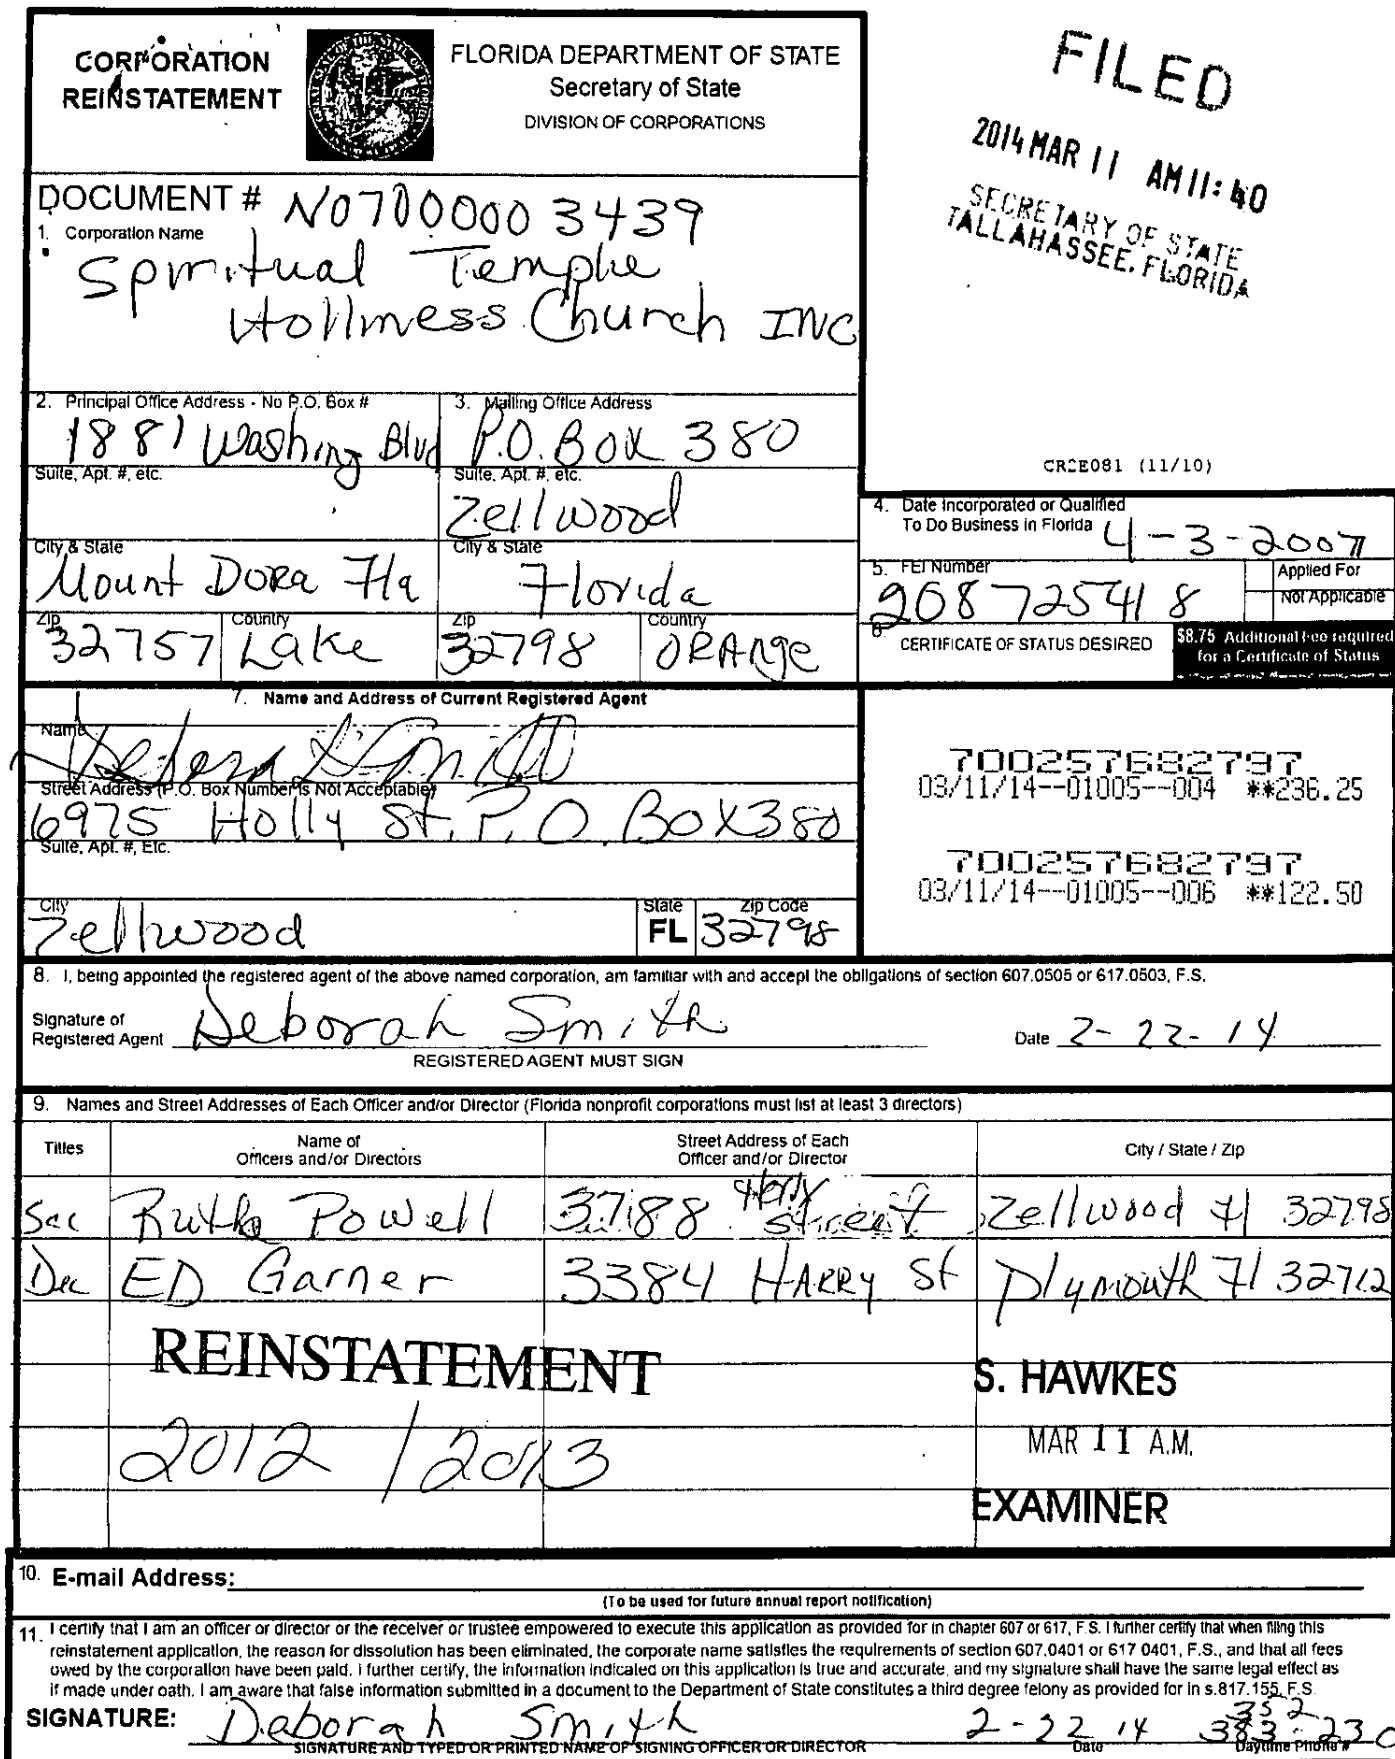 CORPORATION
REINSTATEMENT
FLORIDA DEPARTMENT OF STATE
Secretary of State
DIVISION OF CORPORATIONS
FILED
2014 MAR 11 AM 11:40
SECRETARY OF STATE
TALLAHASSEE, FLORIDA
DOCUMENT # N07000003439
1. Corporation Name
Spiritual Temple
Holliness Church INC
2. Principal Office Address - No P.O. Box #
1881 Washing Blvd
3. Mailing Office Address
P.O. Box 380
CR2E081 (11/10)
Suite, Apt. #, etc.
Suite, Apt. #, etc.
Zellwood
4. Date Incorporated or Qualified
To Do Business in Florida 4-3-2007
City & State
Mount DORA Fla
City & State
Florida
5. FEI Number
208725418
Applied For
Not Applicable
Zip
32757
Country
Lake
Zip
32798
Country
ORANge
6 CERTIFICATE OF STATUS DESIRED
$8.75 Additional Fee required
for a Certificate of Status
7. Name and Address of Current Registered Agent
Name
Street Address (P.O. Box Number is Not Acceptable)
6975 Holly St. P.O. BOX 380
Suite, Apt. #, Etc.
City
Zellwood
State
FL
Zip Code
32798
700257682797
03/11/14--01005--004 **236.25
700257682797
03/11/14--01005--006 **122.50
8. I, being appointed the registered agent of the above named corporation, am familiar with and accept the obligations of section 607.0505 or 617.0503, F.S.
Signature of
Registered Agent Deborah Smith
Date 2-22-14
REGISTERED AGENT MUST SIGN
9. Names and Street Addresses of Each Officer and/or Director (Florida nonprofit corporations must list at least 3 directors)
Titles
Name of
Officers and/or Directors
Street Address of Each
Officer and/or Director
City / State / Zip
Sec Ruth Powell 37188 street Zellwood Fl 32798
Dec ED Garner 3384 HARRY St Plymouth Fl 32712
REINSTATEMENT
2012 / 2013
S. HAWKES
MAR 11 A.M.
EXAMINER
10. E-mail Address:
(To be used for future annual report notification)
11. I certify that I am an officer or director or the receiver or trustee empowered to execute this application as provided for in chapter 607 or 617, F.S. I further certify that when filing this
reinstatement application, the reason for dissolution has been eliminated, the corporate name satisfies the requirements of section 607.0401 or 617 0401, F.S., and that all fees
owed by the corporation have been paid. I further certify, the information indicated on this application is true and accurate, and my signature shall have the same legal effect as
if made under oath. I am aware that false information submitted in a document to the Department of State constitutes a third degree felony as provided for in s.817.155, F.S.
SIGNATURE: Deborah Smith 2-22 14 352
383-230
SIGNATURE AND TYPED OR PRINTED NAME OF SIGNING OFFICER OR DIRECTOR
Date
Daytime Phone #